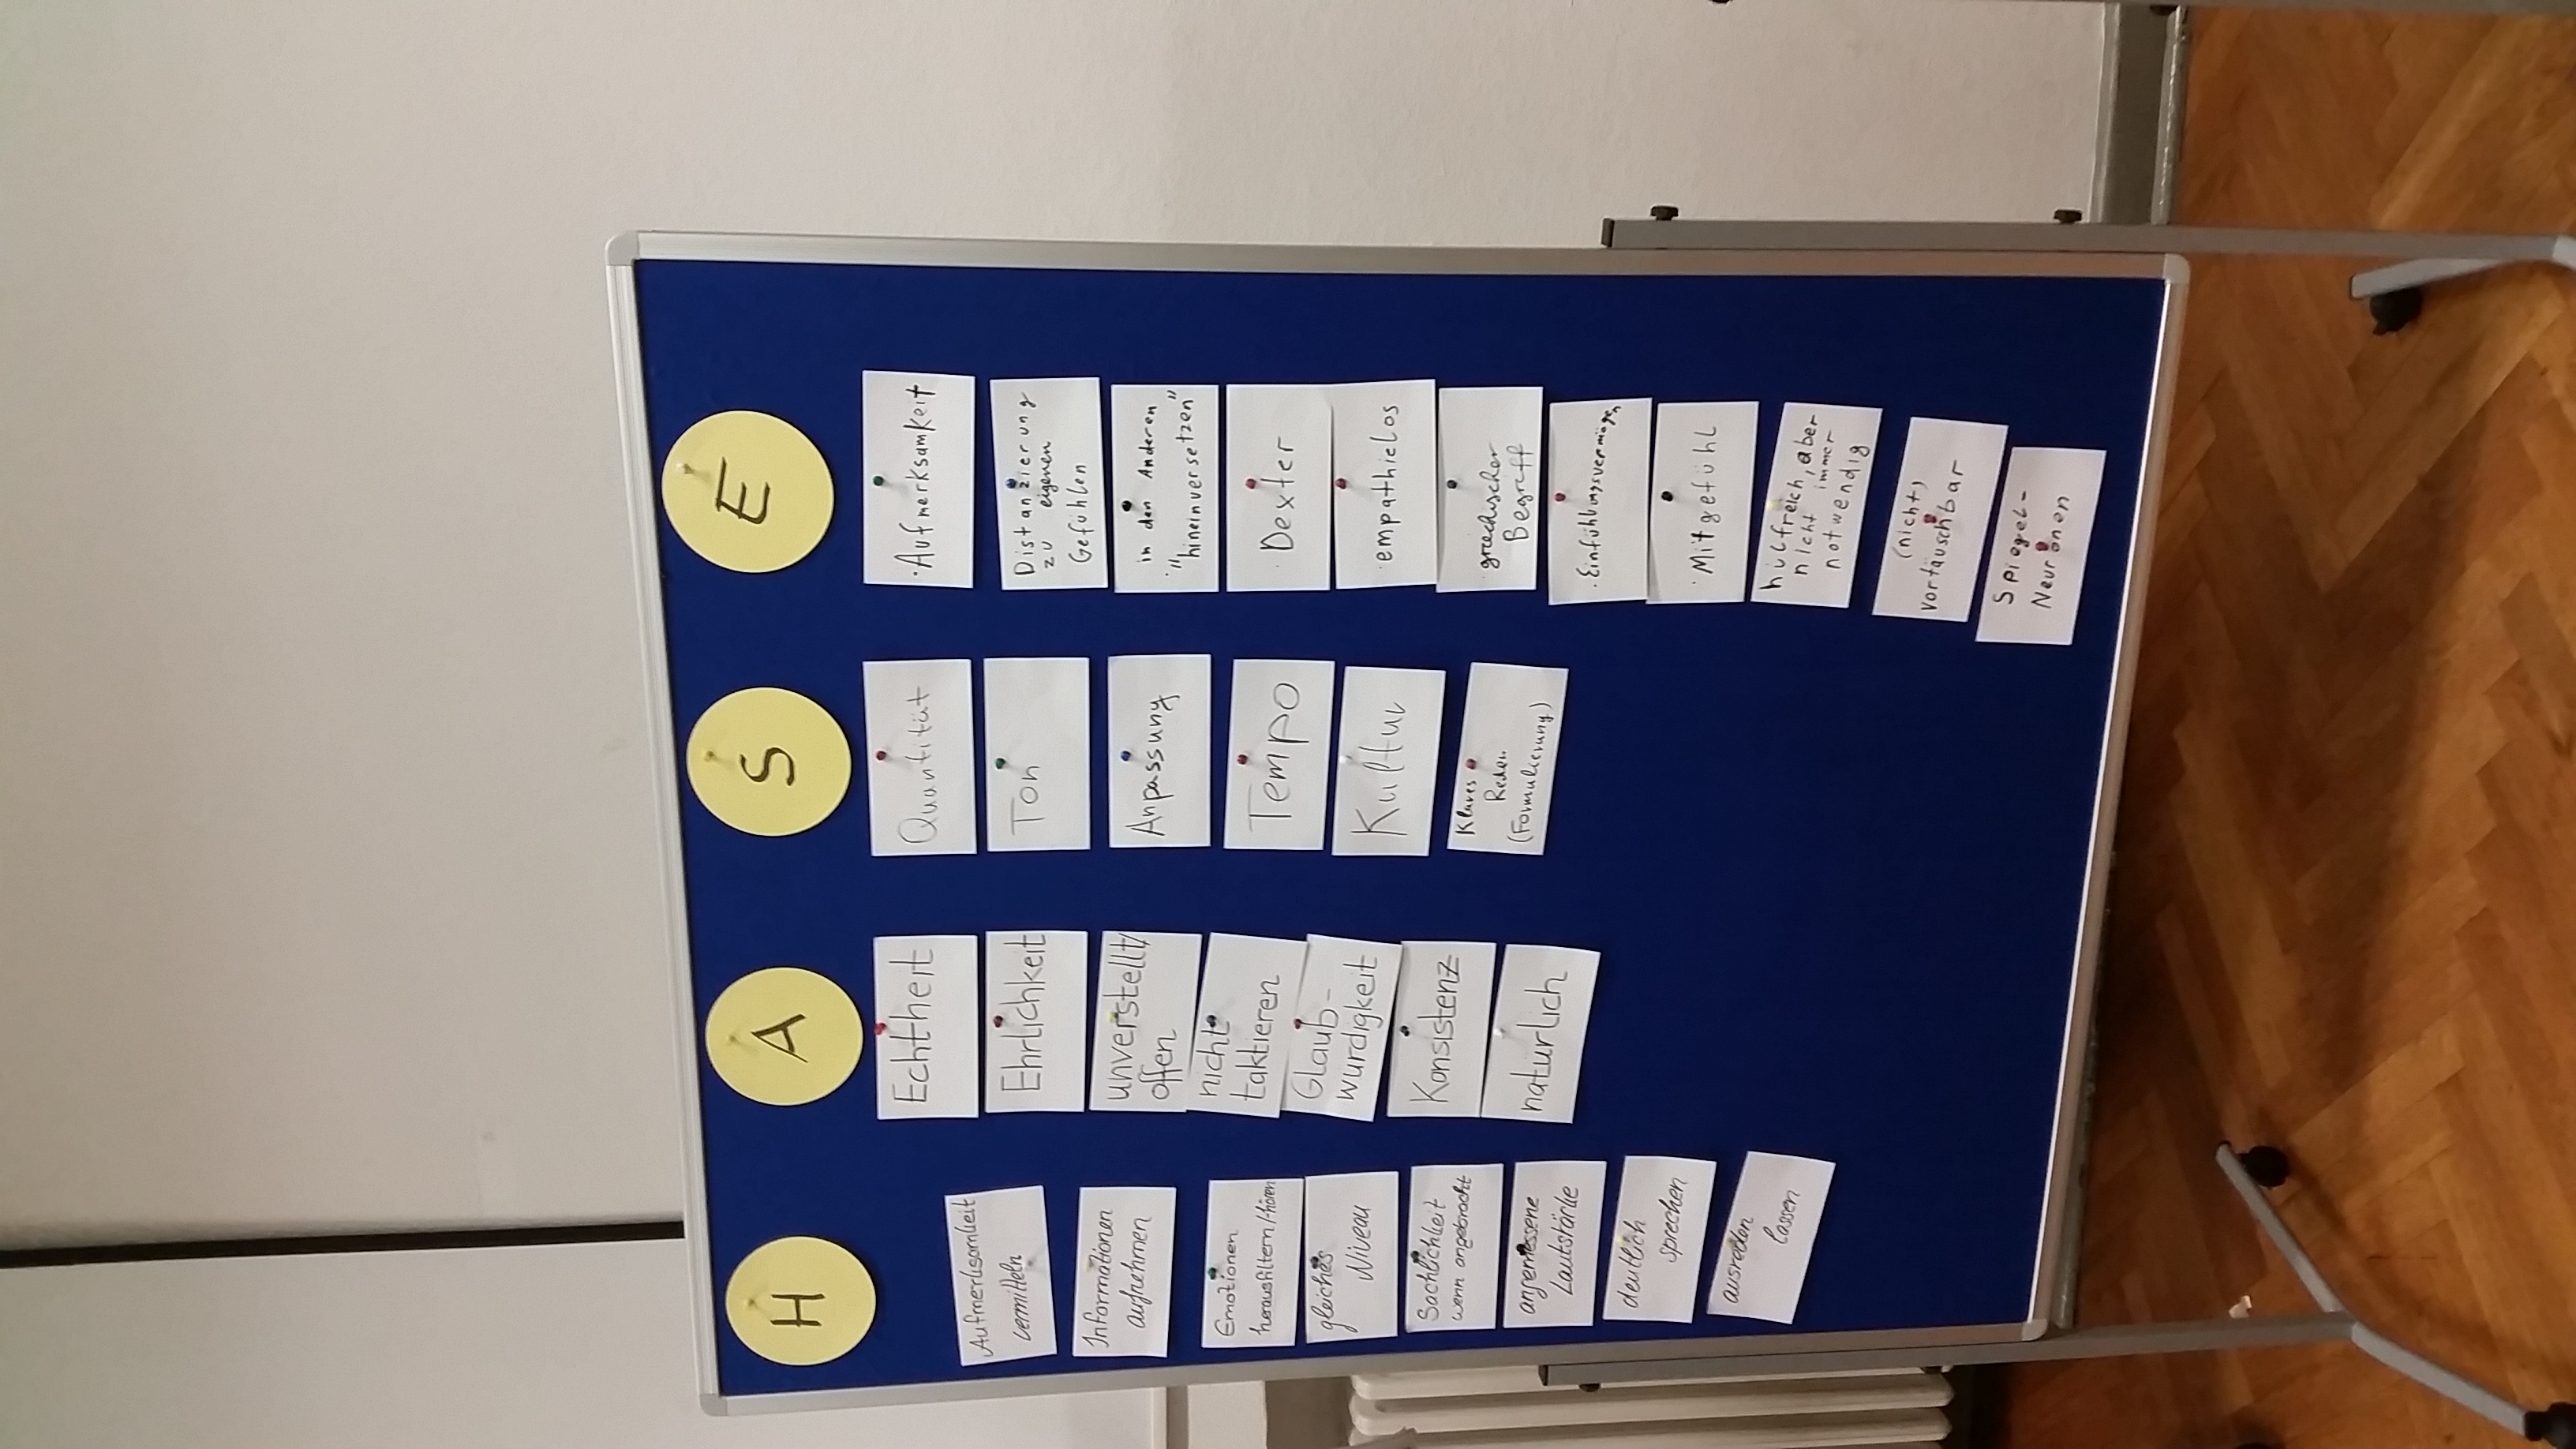 H
A
S
E
Aufmerksamkeit
vermitteln
Informationen
aufnehmen
Emotionen
herausfiltern/-hören
gleiches
Niveau
Sachlichkeit
wenn angebracht
angemessene
Lautstärke
deutlich
sprechen
ausreden
lassen
Echtheit
Ehrlichkeit
unverstellt/
offen
nicht
taktieren
Glaub-
würdigkeit
Konsistenz
natürlich
Quantität
Ton
Anpassung
Tempo
Kultur
Klares
Reden
(Formulierung)
·Aufmerksamkeit
Distanzierung
zu eigenen
Gefühlen
in den Anderen
"hineinversetzen"
·Dexter
·empathielos
·griechischer
Begriff
·Einfühlungsvermögen
·Mitgefühl
hilfreich, aber
nicht immer
notwendig
(nicht)
vortäuschbar
Spiegel-
Neuronen